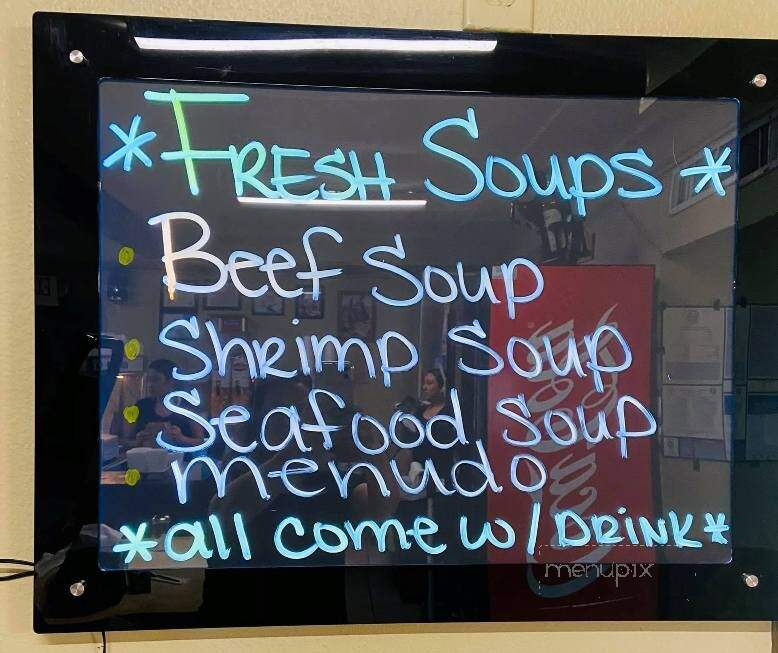 *FRESH SOUPS*
• Beef Soup
• Shrimp Soup
• Seafood Soup
• menudo
*all come w/ DRINK*
menupix
Coca-Cola